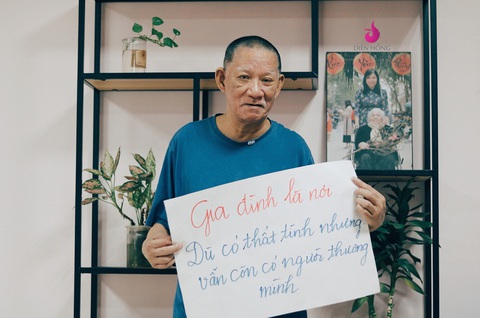 DIÊN HỒNG
Gia đình là nơi
Dù có thất tình nhưng
vẫn còn có người thương
mình